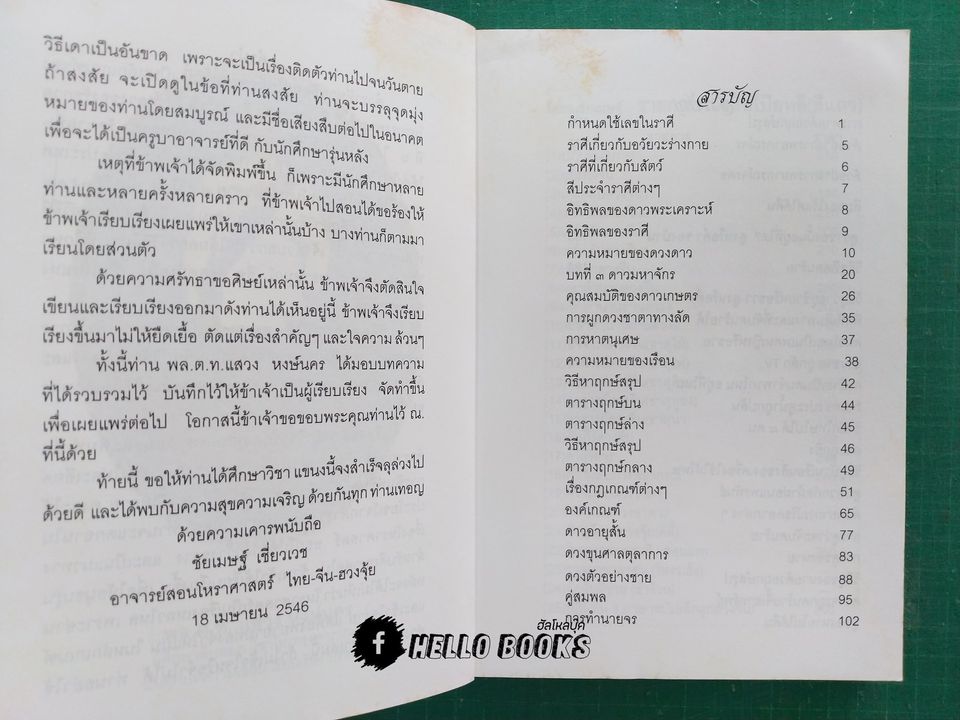 วิธีเดาเป็นอันขาด เพราะจะเป็นเรื่องติดตัวท่านไปจนวันตาย
ถ้าสงสัย จะเปิดดูในข้อที่ท่านสงสัย ท่านจะบรรลุจุดมุ่ง
หมายของท่านโดยสมบูรณ์ และมีชื่อเสียงสืบต่อไปในอนาคต
เพื่อจะได้เป็นครูบาอาจารย์ที่ดี กับนักศึกษารุ่นหลัง
เหตุที่ข้าพเจ้าได้จัดพิมพ์ขึ้น ก็เพราะมีนักศึกษาหลาย
ท่านและหลายครั้งหลายคราว ที่ข้าพเจ้าไปสอนได้ขอร้องให้
ข้าพเจ้าเรียบเรียงเผยแพร่ให้เขาเหล่านั้นบ้าง บางท่านก็ตามมา
เรียนโดยส่วนตัว
ด้วยความศรัทธาขอศิษย์เหล่านั้น ข้าพเจ้าจึงตัดสินใจ
เขียนและเรียบเรียงออกมาดังท่านได้เห็นอยู่นี้ ข้าพเจ้าจึงเรียบ
เรียงขึ้นมาไม่ให้ยืดเยื้อ ตัดแต่เรื่องสำคัญๆ และใจความ ล้วนๆ
ทั้งนี้ท่าน พล.ต.ท.แสวง หงษ์นคร ได้มอบบทความ
ที่ได้รวบรวมไว้ บันทึกไว้ให้ข้าเจ้าเป็นผู้เรียบเรียง จัดทำขึ้น
เพื่อเผยแพร่ต่อไป โอกาสนี้ข้าเจ้าขอขอบพระคุณท่านไว้ ณ.
ที่นี้ด้วย
ท้ายนี้ ขอให้ท่านได้ศึกษาวิชา แขนงนี้จงสำเร็จลุล่วงไป
ด้วยดี และได้พบกับความสุขความเจริญ ด้วยกันทุก ท่านเทอญ
ด้วยความเคารพนับถือ
ชัยเมษฐ์ เชี่ยวเวช
อาจารย์สอนโหราศาสตร์ ไทย-จีน-ฮวงจุ้ย
18 เมษายน 2546
สารบัญ
กำหนดใช้เลขในราศี 1
ราศีเกี่ยวกับอวัยวะร่างกาย 5
ราศีที่เกี่ยวกับสัตว์ 6
สีประจำราศีต่างๆ 7
อิทธิพลของดาวพระเคราะห์ 8
อิทธิพลของราศี 9
ความหมายของดวงดาว 10
บทที่ ๓ ดาวมหาจักร 20
คุณสมบัติของดาวเกษตร 26
การผูกดวงชาตาทางลัด 35
การหาตนุเศษ 37
ความหมายของเรือน 38
วิธีหาฤกษ์สรุป 42
ตารางฤกษ์บน 44
ตารางฤกษ์ล่าง 45
วิธีหาฤกษ์สรุป 46
ตารางฤกษ์กลาง 49
เรื่องกฏเกณฑ์ต่างๆ 51
องค์เกณฑ์ 65
ดาวอายุสั้น 77
ดวงขุนศาลตุลาการ 83
ดวงตัวอย่างชาย 88
คู่สมพล 95
การทำนายจร 102
ฮัลโหลบุ๊ค
f HELLO BOOKS